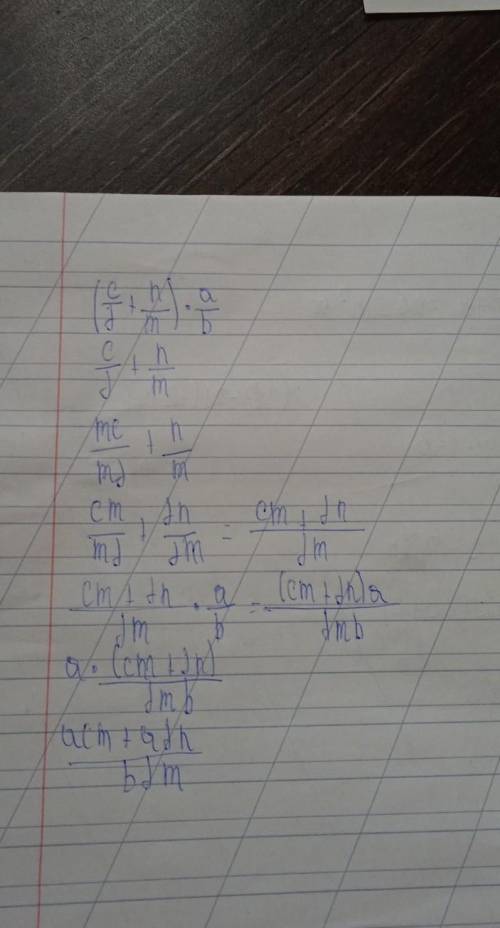 (c/d + n/m) · a/b
c/d + n/m
mc/md + n/m
cm/md + dn/dm = cm + dn/dm
cm + dn/dm · a/b = (cm + dn)a/dmb
a · (cm + dn)/dmb
acm + adn/bdm